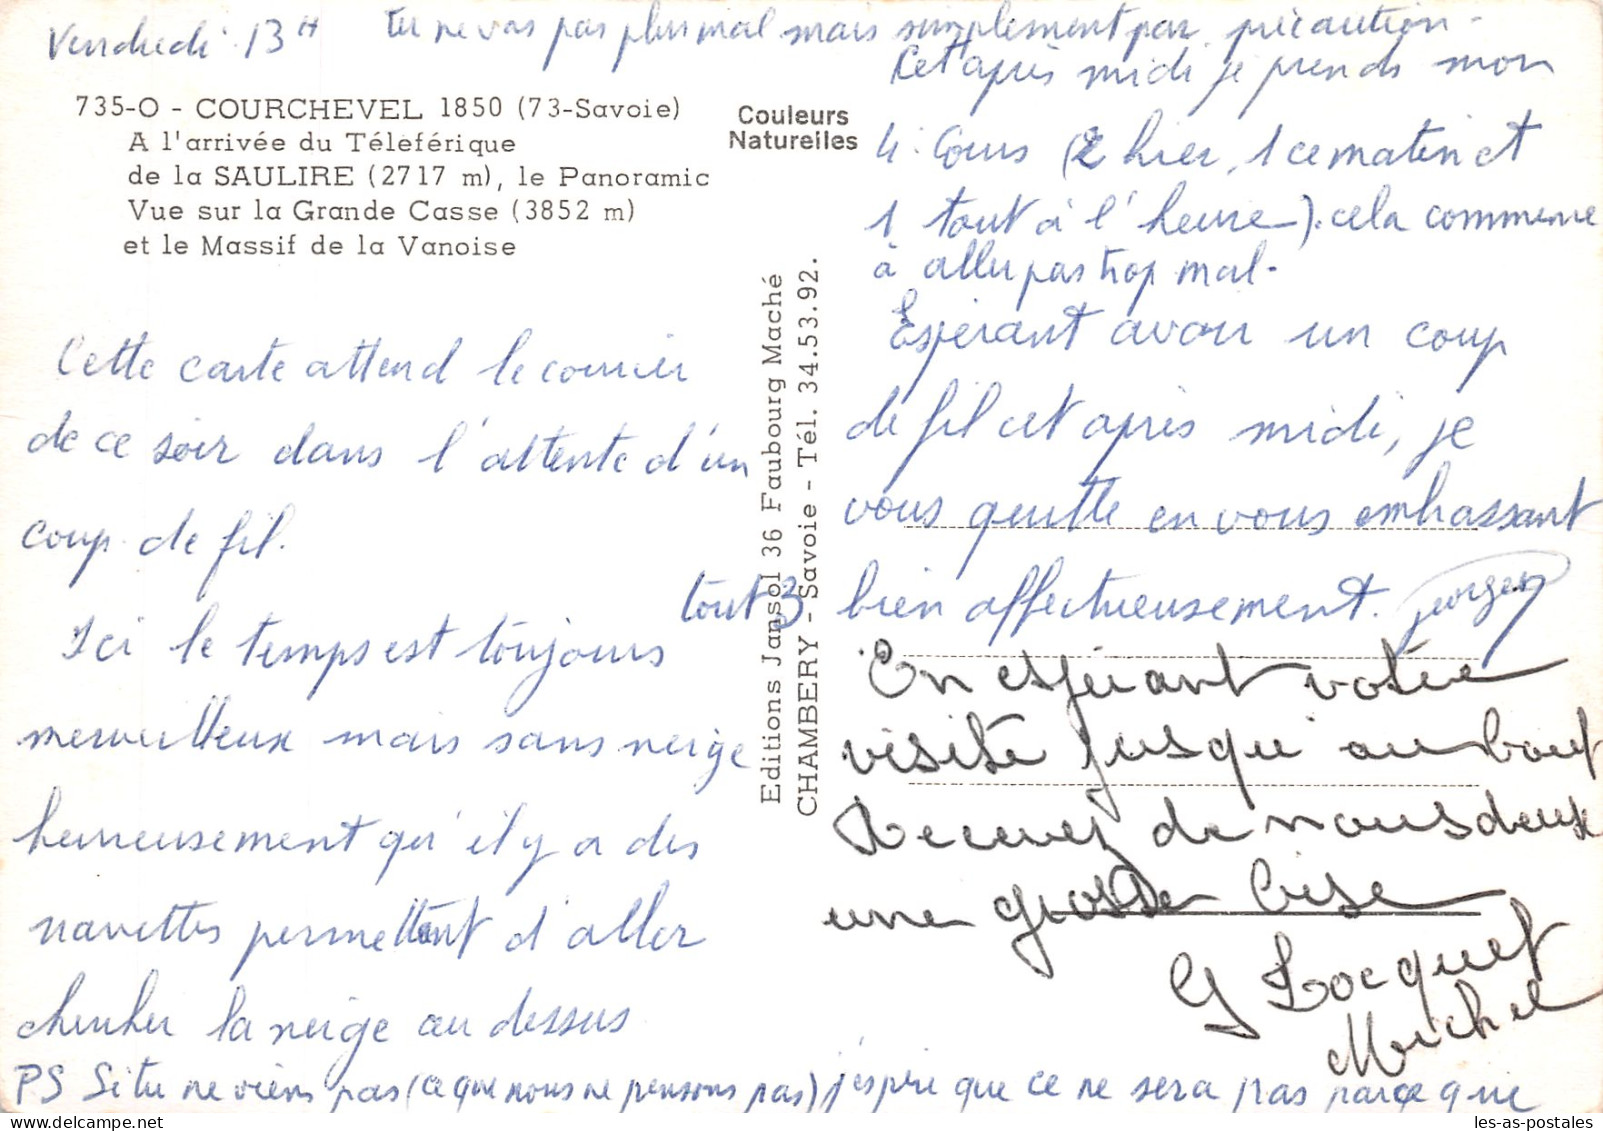 Vendredi 13H
735-O - COURCHEVEL 1850 (73-Savoie)
A l'arrivée du Téléférique
de la SAULIRE (2717 m), le Panoramic
Vue sur la Grande Casse (3852 m)
et le Massif de la Vanoise
Couleurs
Naturelles
Cette carte attend le courrier
de ce soir dans l'attente d'un
coup de fil.
Ici le temps est toujours
merveilleux mais sans neige
heureusement qu'il y a des
navettes permettant d'aller
chercher la neige au dessus
PS Si tu ne viens pas (ce que nous ne pensons pas) j'espère que ce ne sera pas parce que
tu ne vas pas plus mal mais simplement par précaution.
Editions Jansol 36 Faubourg Maché
CHAMBERY - Savoie - Tél. 34.53.92.
Cet après midi je prends mon
4. Cours (2 hier, 1 ce matin et
1 tout à l'heure). cela commence
à aller pas trop mal.
Espérant avoir un coup
de fil cet après midi, je
vous quitte en vous embrassant
tout 3 bien affectueusement. Georges
En espérant votre
visite jusqu'au bout
Recevez de nous deux
une grosse bise
G Locquet
Michel
les-as-postales